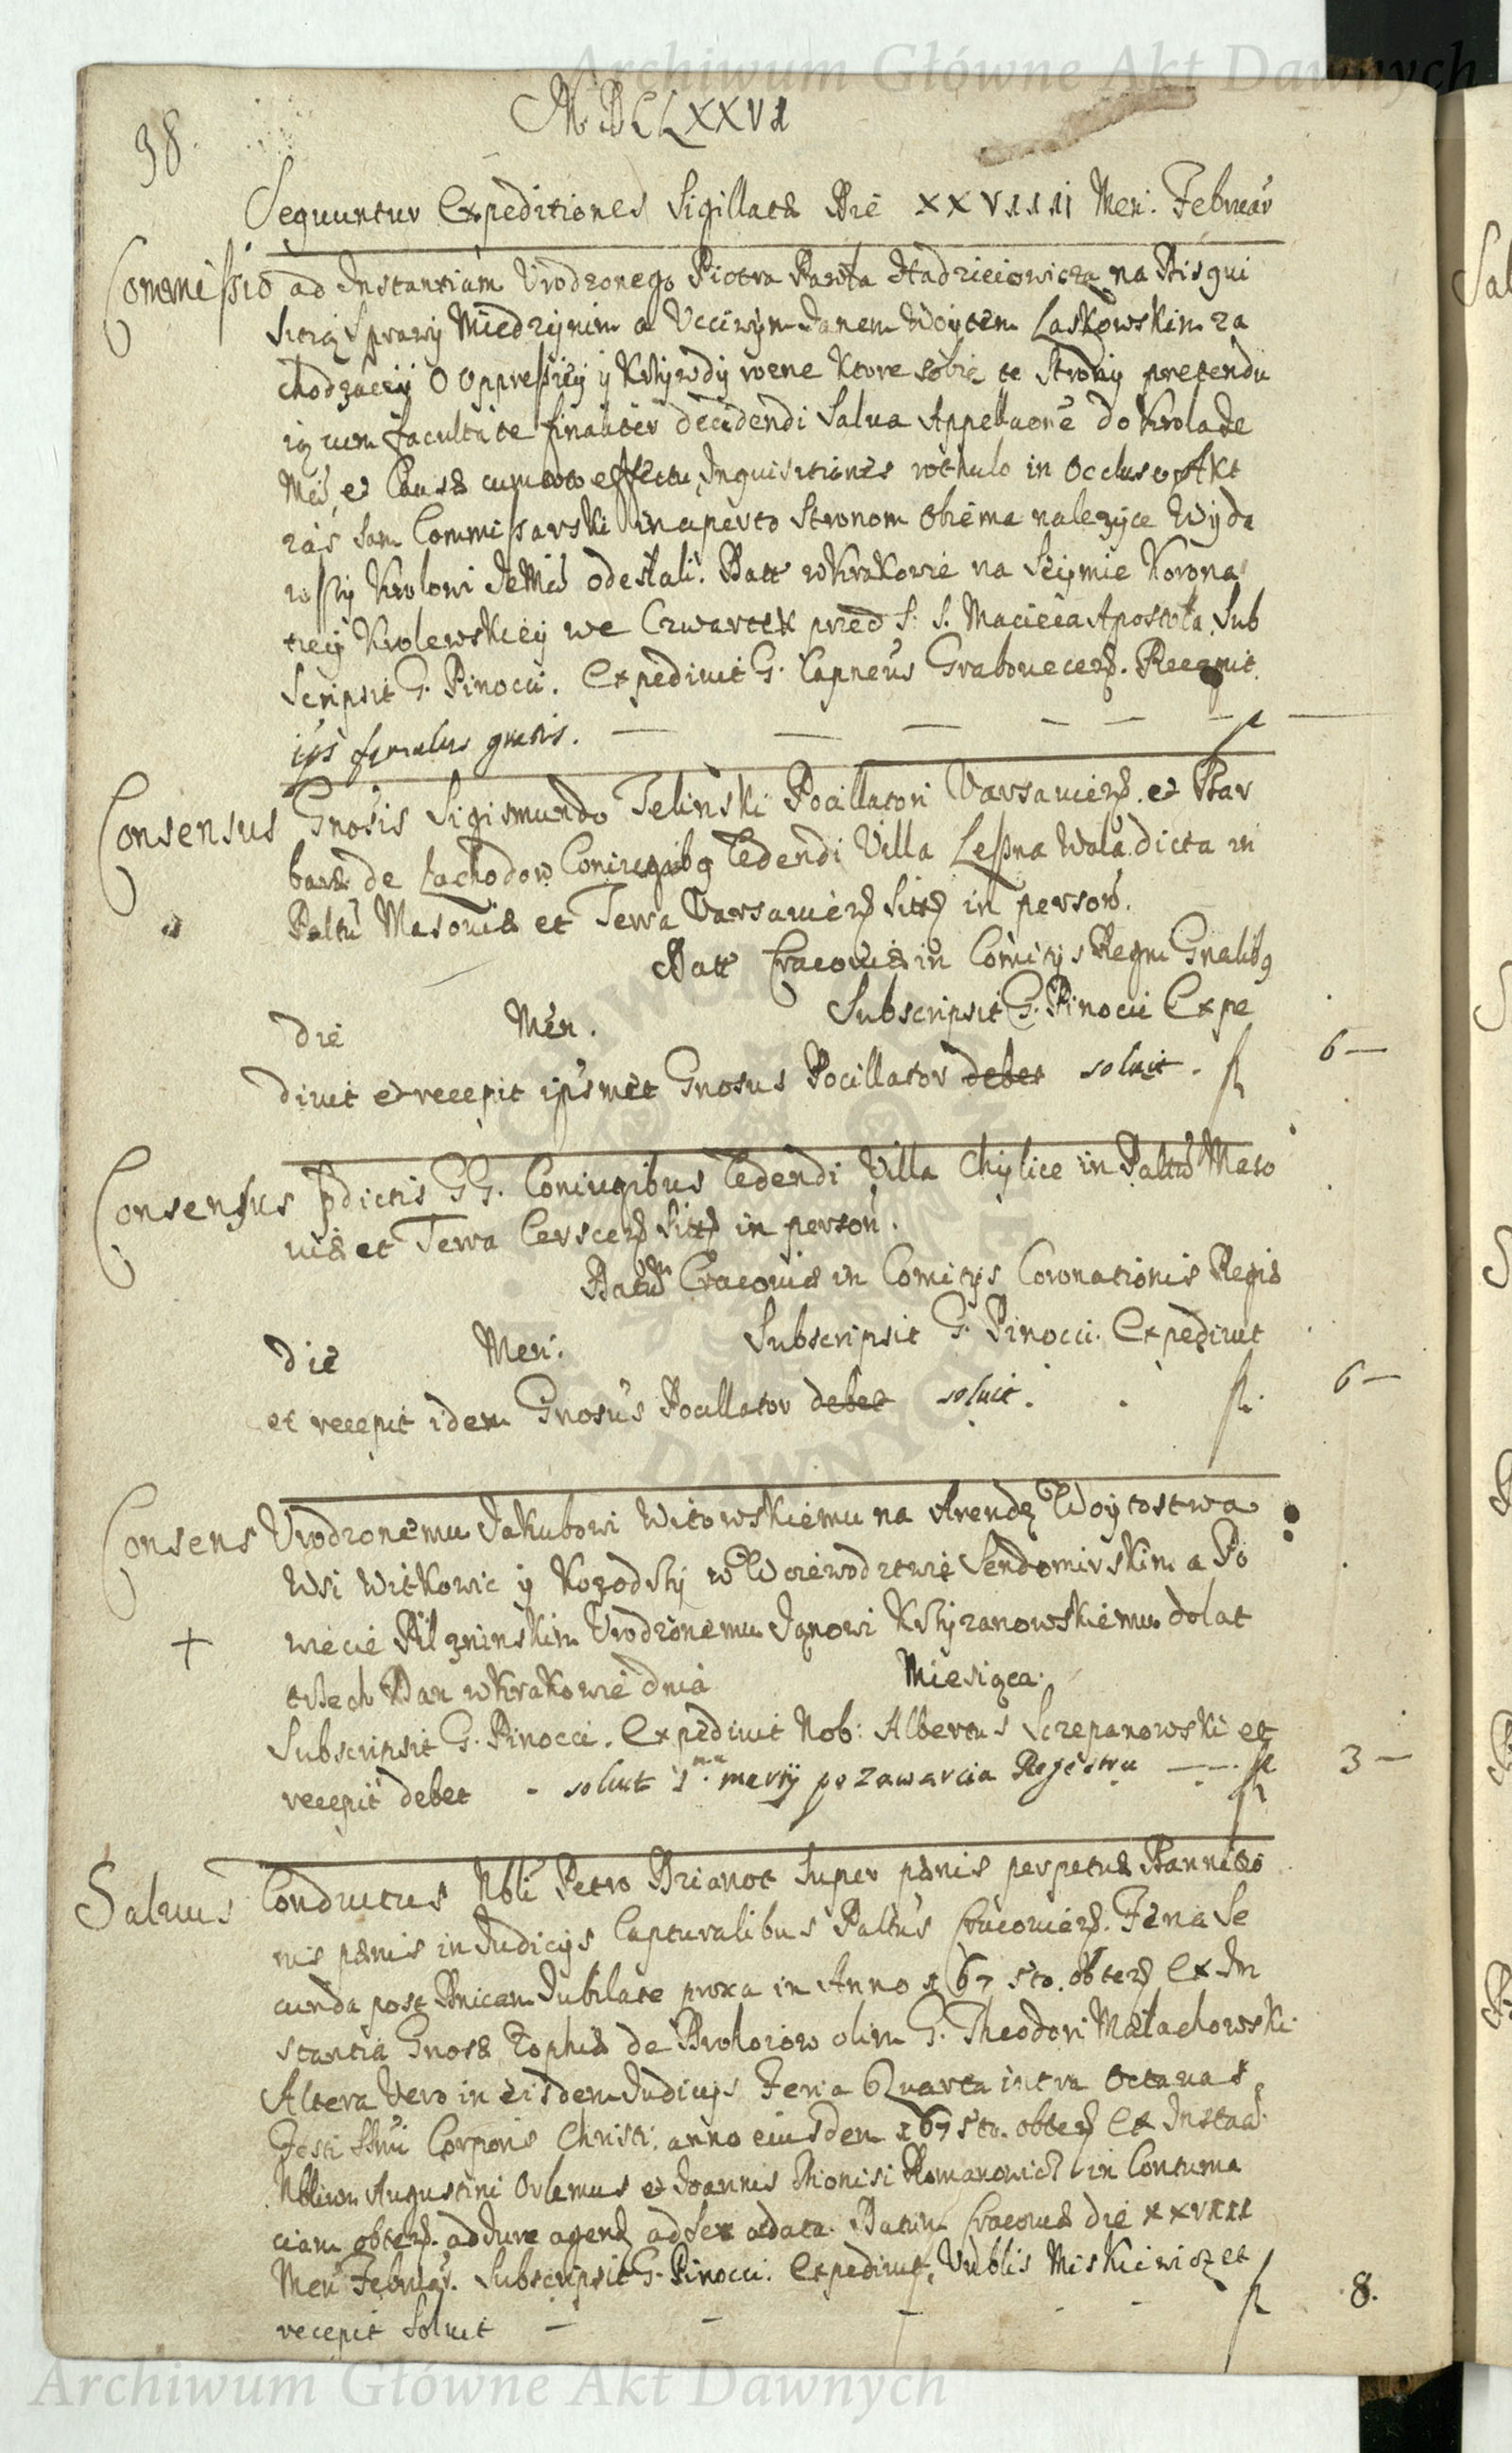 Archiwum Główne Akt Dawnych
98.
MDCLXXVI
Sequuntur Expeditiones Sigillatæ Die XXVIIII Men. Februar
Commissio ad Instantiam Urodzonego Piotra Pawła Hadzieiowicza na Disqui
sitią Sprawy Miedzynim a Ucciwym Janem Woytem Laskowskim za
chodzącey O Oppressiey y Krzywdy rozne Ktore sobie te Strony pretendu
ią cum facultate finaliter decidendi Salva Appellaone do Krola Je
Mci, et Causæ cum toto effectu, Inquisitiones rothulo in Occluso, Akt
zaś sam Commissarski in aperto Stronom Obiema nalezyce Wyda
wszy Krolowi Je Mci odesłali. Datt w Krakowie na Seymie Korona
tiey Krolewskiey we Czwartek przed S. S. Macieia Apostoła. Sub
scripsit G. Pinocci. Expedivit G. Capneus Grabovecen. Recepit
ips famulus gratis. — — — — — fl —
Consensus Gnosis Sigismundo Telinski Pocillatori Varsavien. et Bar
baræ de Lachodow Coniugibq Cedendi Villa Lesna Wola dicta in
Paltu Masoviæ et Terra Varsavien sitt in person.
Datt Cracoviæ in Comitys Regni Gnalibq
die Men. Subscripsit G. Pinocci Expe
divit et recepit ipsmet Gnosus Pocillator debet soluit. fl 6 —
Consensus pdictis GG. Coniugibus Cedendi Villa Chylice in Paltu Maso
viæ et Terra Cerscen sitt in person.
Datum Cracoviæ in Comitys Coronationis Regis
die Men. Subscripsit G. Pinocci. Expedivit
et recepit idem Gnosus Pocillator debet soluit. fl. 6 —
Consens Urodzonemu Jakubowi Witowskiemu na Arendę Woytostwa
Wsi Witkowic y Kozodrzy w Woiewodztwie Sendomirskim a Po
wiecie Pilzninskim Urodzonemu Janowi Krzyzanowskiemu do lat
trzech Dan w Krakowie dnia Miesiąca.
Subscripsit G. Pinocci. Expedivit Nob: Albertus Sczepanowski et
recepit debet - soluit po zawarcia Regestru — fl 3 —
Salvus Conductus Nbli Petro Brianot super pænis perpetuæ Bannitio
nis pænis in Judicijs Capturalibus Paltus Cracovien. Feria Se
cunda post Dnicam Jubilate proxa in Anno 167 sto. obten Ex In
stantia Gnosæ Zophiæ de olim G. Theodori Małachowski
Altera Vero in eisdem Judicijs Feria Quarta intra Octavas
Festi Ssmi Corporis Christi. anno eiusdem 167 sto. obten Ex Instaa
Nblium Augustini Orlemus et Joannis Dionisi Romanowicz in Contuma
ciam obten. ad Jure agen ad Sex data. Datum Cracoviæ die XXVIII
Men Februar. Subscripsit G. Pinocci. Expedivit Nblis Miskiewicz et
recepit soluit — — — — — fl 8.
Archiwum Główne Akt Dawnych